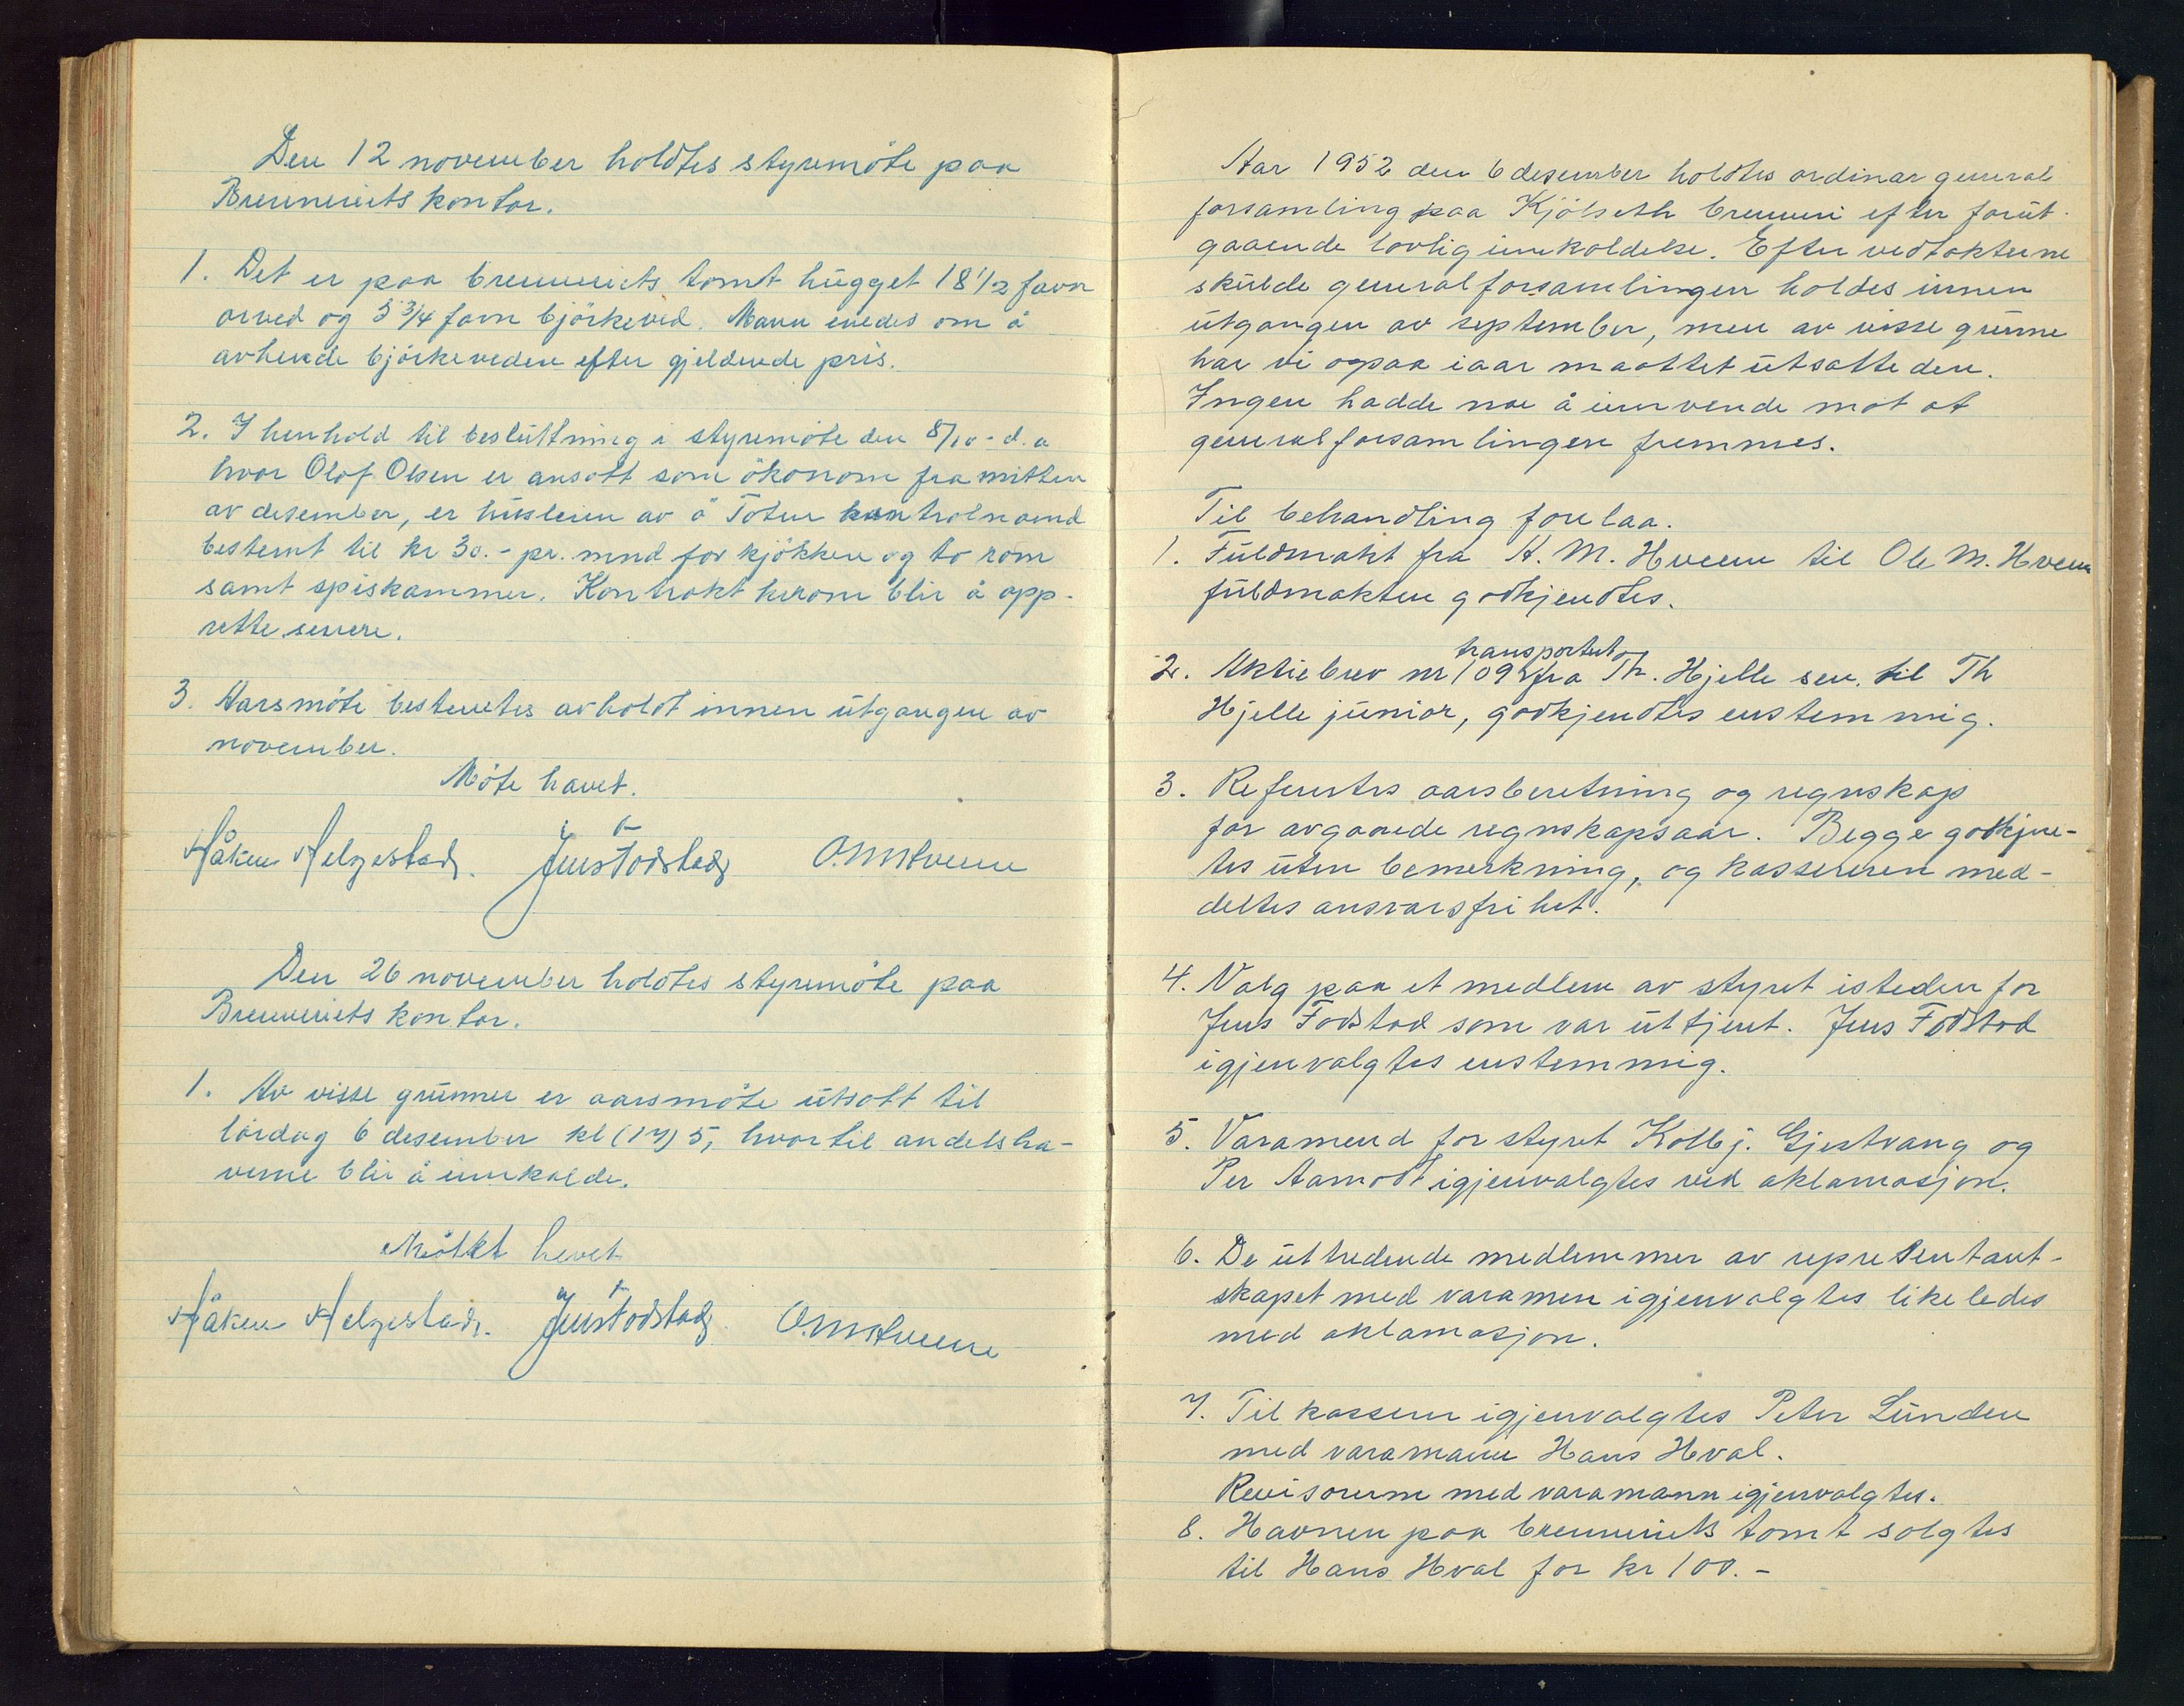 Den 12 november holdtes styremöte paa
Brenneriets kontor.
1. Det er paa brenneriets tomt hugget 18 1/2 favn
orved og 5 3/4 favn björkeved. Mann enedes om å
avhende björkeveden efter gjeldende pris.
2. I henhold til besluttning i styremöte den 8/10 - d.a
hvor Olof Olsen er ansatt som ökonom fra mitten
av desember, er husleien av ö Toten kontrolnemd
bestemt til kr 30.- pr. mnd for kjökken og to rom
samt spiskammer. Kontrakt herom blir å opp-
rette senere.
3. Aarsmöte bestemtes avholdt innen utgangen av
november.
Möte havet.
Håken Helgestad. Jens Fodstad O.M.Hveem
Den 26 november holdtes styremöte paa
Brenneriets kontor.
1. Av visse grunner er aarsmöte utsatt til
lördag 6 desember kl (17) 5, hvortil andelsha-
verne blir å innkalde.
Mötet hevet
Håken Helgestad. Jens Fodstad O.M.Hveem
Aar 1952 den 6 desember holdtes ordinær general
forsamling paa Kjölseth brenneri efter forut-
gaaende lovlig innkaldelse. Efter vedtakterne
skulde generalforsamlingen holdes innen
utgangen av september, men av visse grunne
har vi ogsaa iaar maattet utsatte den.
Ingen hadde noe å innvende mot at
generalforsamlingen fremmes.
Til behandling forelaa.
1. Fuldmakt fra H. M. Hveem til Ole M. Hveem
fuldmakten godkjendtes.
transportert
2. Aktiebrev nr 109 fra Th. Hjelle sen. til Th
Hjelle junior, godkjendtes enstemmig.
3. Refertes aarsberetning og regnskap
for avgaaede regnskapsaar. Begge godkjen-
tes uten bemerkning, og kassereren med-
deltes ansvarsfrihet.
4. Valg paa et medlem av styret isteden for
Jens Fodstad som var uttjent. Jens Fodstad
igjenvalgtes enstemmig.
5. Varamend for styret Kolbj. Gjestvang og
Per Aamodt igjenvalgtes ved aklamasjon.
6. De uttredende medlemmer av representant-
skapet med varamen igjenvalgtes likeledes
med aklamasjon.
7. Til kasserer igjenvalgtes Peter Lunden
med varamann Hans Hval.
Revisorerne med varamann igjenvalgtes.
8. Havnen paa brenneriets tomt solgtes
til Hans Hval for kr 100.-